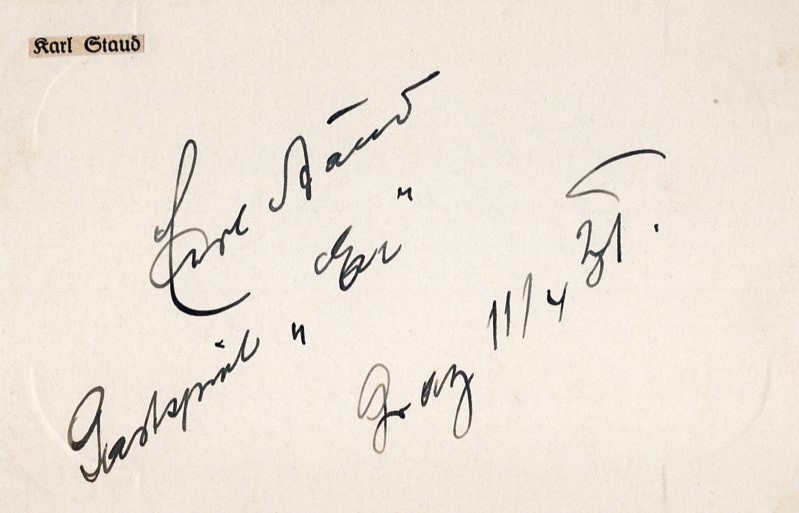 Karl Staud
Karl Staud
Gastspiel "Er"
Graz 11/4 31.